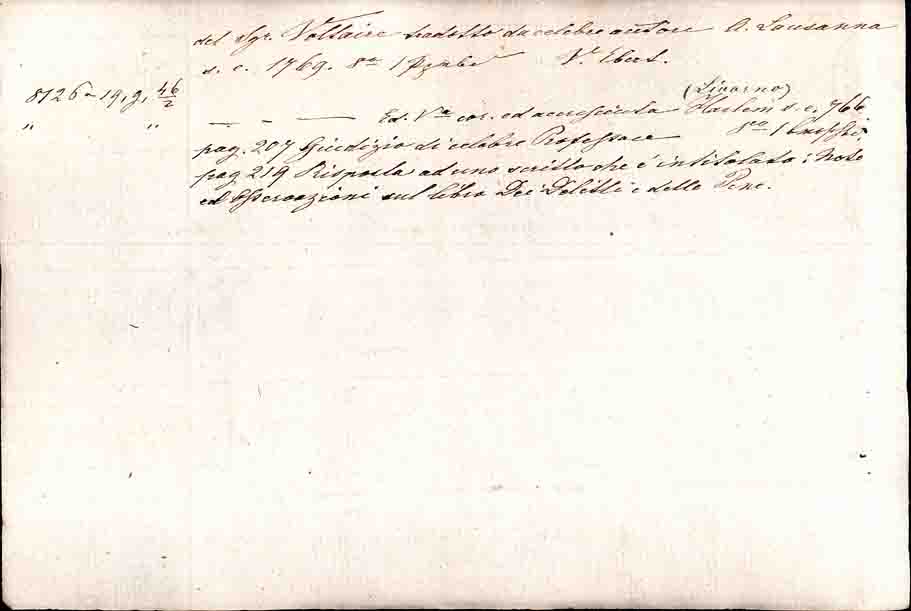 del Sgr. Voltaire tradotto da celebre autore A. Lausanna
s. e. 1769. 8ᵛᵒ 1 V. Ebert.
8126 - 19, g, 46/2
(Livorno)
" " — - — Ed. Vᵗᵃ cor. ed accresciuta Harlem s. e. 766
8ᵛᵒ 1
pag. 207 Giudizio di celebre Professore
pag 219 Risposta ad uno scritto che é intitolato: Note
ed Osservazioni sul libro Dei Delitti e delle Pene.